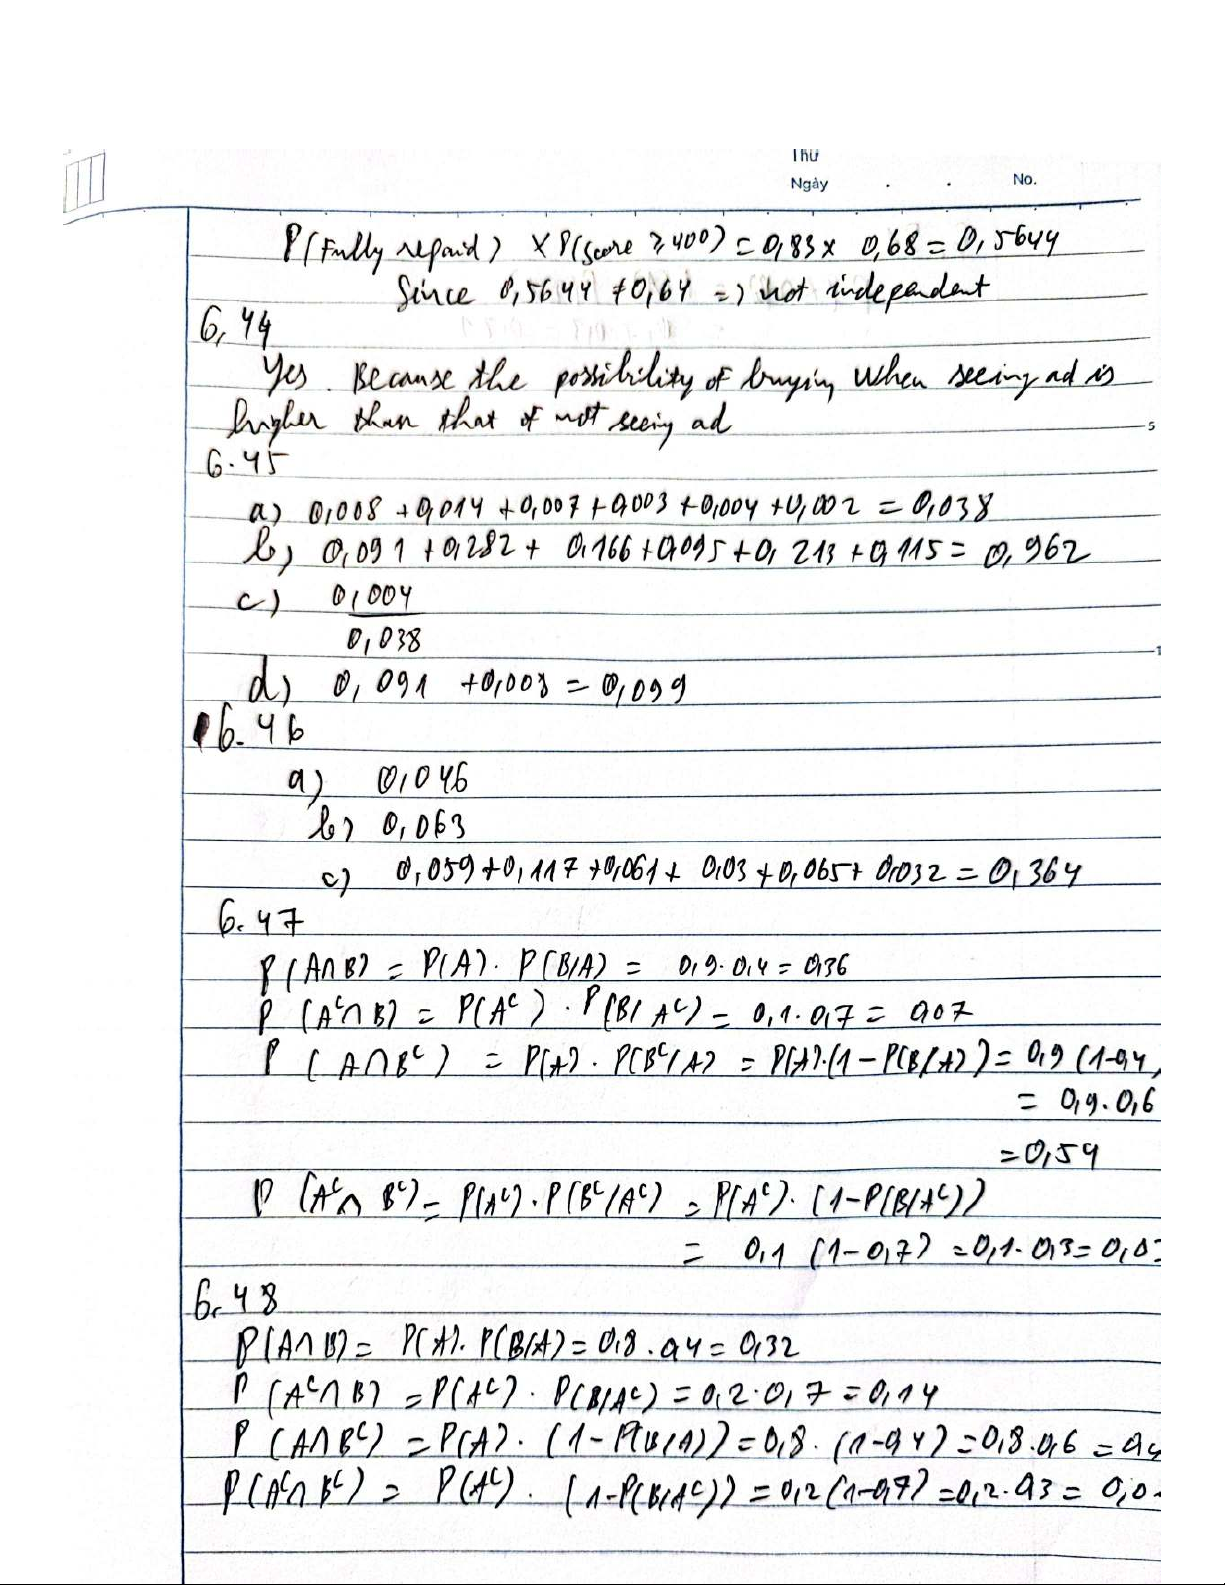 Thứ
Ngày . . No.
P(Fully repaid) x P(score ≥ 400) = 0,83 x 0,68 = 0,5644
Since 0,5644 ≠ 0,64 => not independent
6.44
Yes. Because the possibility of buying when seeing ad is
higher than that of not seeing ad
5
6.45
a) 0,008 + 0,014 + 0,007 + 0,003 + 0,004 + 0,002 = 0,038
b) 0,091 + 0,282 + 0,166 + 0,095 + 0,213 + 0,115 = 0,962
c) 0,004
0,038
1
d) 0,091 + 0,008 = 0,099
6.46
a) 0,046
b) 0,063
c) 0,059 + 0,117 + 0,061 + 0,03 + 0,065 + 0,032 = 0,364
6.47
P(A∩B) = P(A). P(B/A) = 0,9. 0,4 = 0,36
P (Aᶜ∩B) = P(Aᶜ) . P(B/Aᶜ) = 0,1. 0,7 = 0,07
P (A∩Bᶜ) = P(A) . P(Bᶜ/A) = P(A).(1 - P(B/A)) = 0,9 (1-0,4)
= 0,9. 0,6
= 0,54
P (Aᶜ∩ Bᶜ) = P(Aᶜ). P(Bᶜ/Aᶜ) = P(Aᶜ). (1-P(B/Aᶜ))
= 0,1 (1-0,7) = 0,1. 0,3 = 0,0
6.48
P(A∩B) = P(A). P(B/A) = 0,8 . 0,4 = 0,32
P (Aᶜ∩B) = P(Aᶜ) . P(B/Aᶜ) = 0,2. 0,7 = 0,14
P (A∩Bᶜ) = P(A). (1 - P(B/A)) = 0,8. (1-0,4) = 0,8. 0,6 = 0,4
P(Aᶜ∩Bᶜ) = P(Aᶜ) . (1-P(B/Aᶜ)) = 0,2 (1-0,7) = 0,2. 0,3 = 0,0